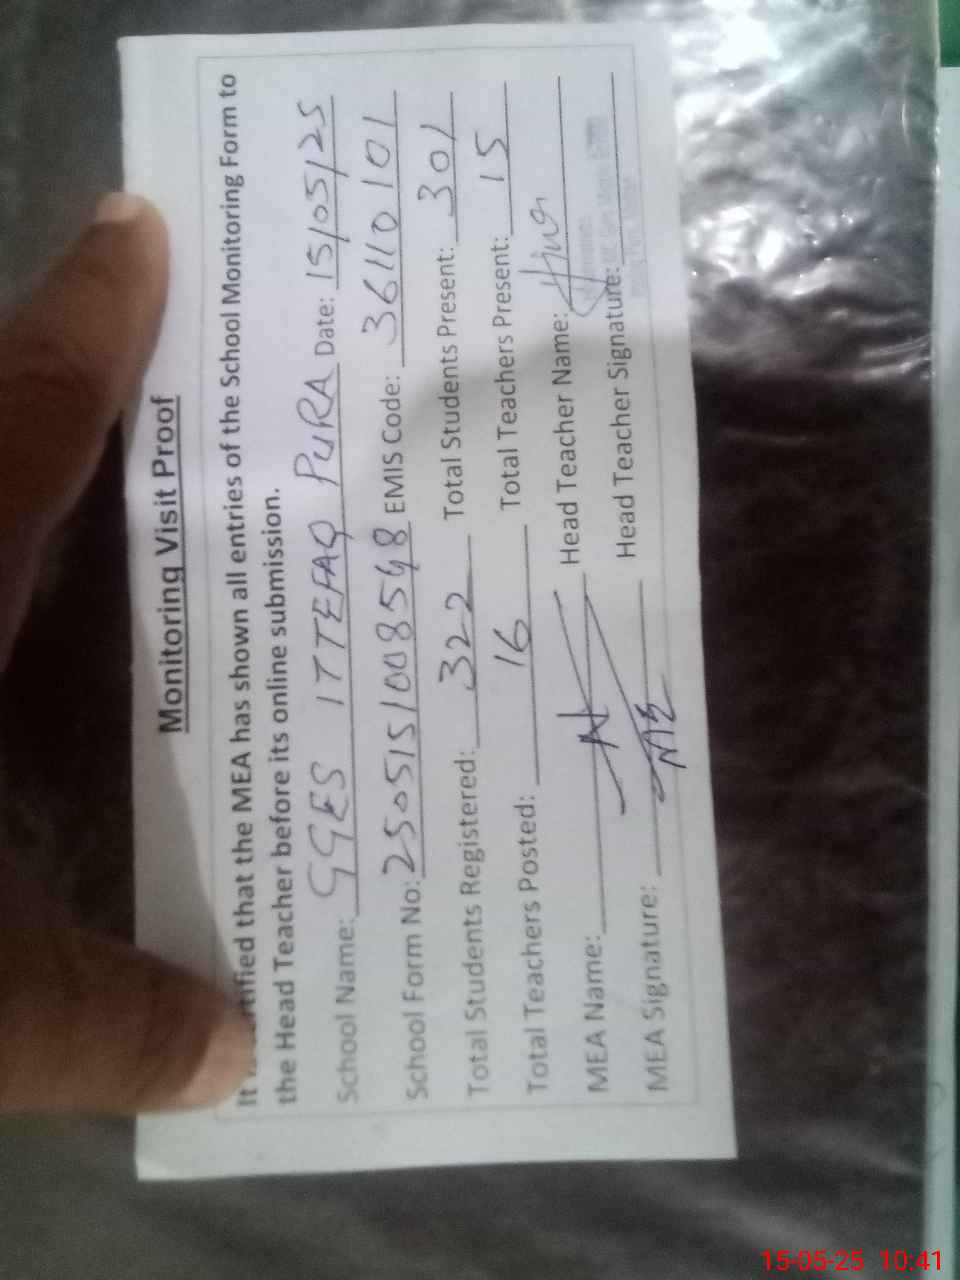 Monitoring Visit Proof
It that the MEA has shown all entries of the School Monitoring Form to
the Head Teacher before its online submission.
School Name: GGES ITTEFAQ PURA Date: 15/05/25
School Form No: 2505151008598 EMIS Code: 36110101
Total Students Registered: 322 Total Students Present: 301
Total Teachers Posted: 16 Total Teachers Present: 15
MEA Name: Head Teacher Name:
MEA Signature: Head Teacher Signature:
15-05-25 10:41